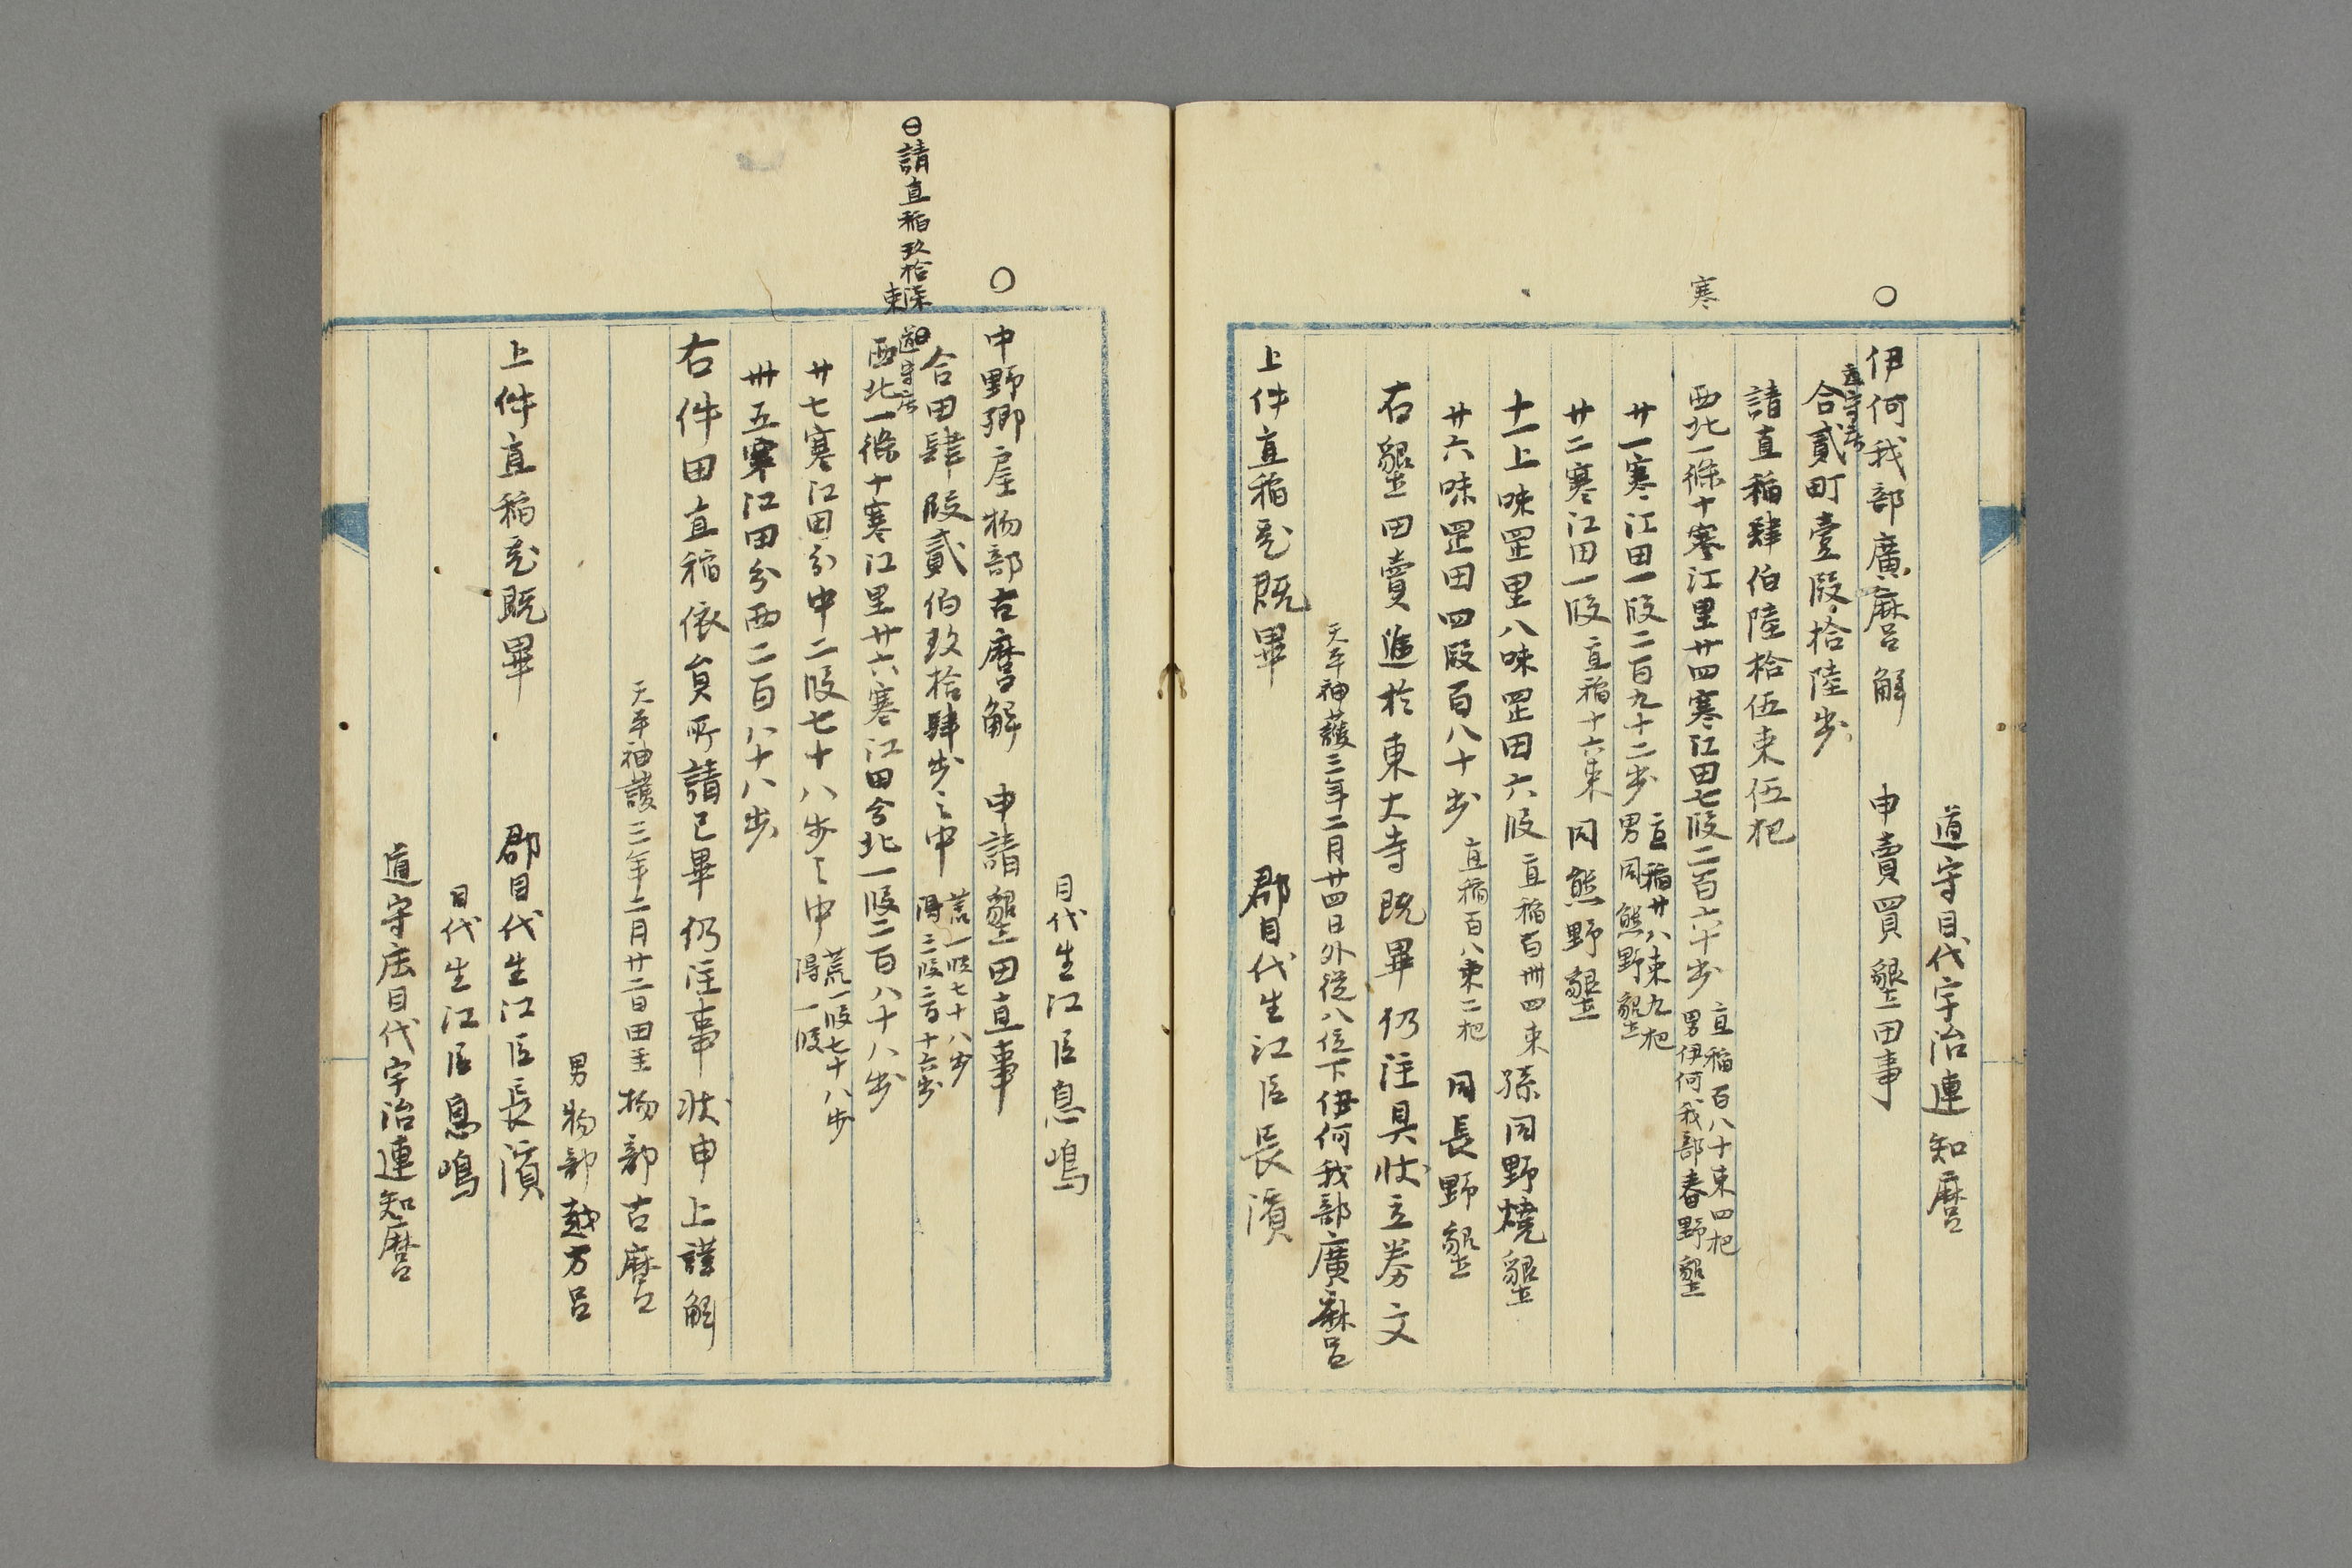 道守目代宇治連知麿
○伊何我部廣麻呂解 申賣買墾田事
道守庄
合貳町壹段拾陸歩
請直稲肆伯陸拾伍束伍把
寒
西北一條十寒江里廿四寒江田七段二百六十歩 直稲百八十束四把
男伊何我部春野墾
廿一寒江田一段二百九十二歩 直稲廿八束九把
男同熊野墾
廿二寒江田一段 直稲十六束 同熊野墾
十一上味岡里八味岡田六段 直稲百卌四束 孫同野焼墾
廿六味岡田四段百八十歩 直稲百八束二把 同長野墾
右墾田賣進於東大寺既畢仍注具状立券文
天平神護三年二月廿四日外従八位下伊何我部廣麻呂
上件直稲充既畢 郡目代生江臣長濱
目代生江臣息嶋
○中野郷戸主物部古麿解 申請墾田直事
道守庄
合田肆段貳伯玖拾肆歩之中 荒一段七十八歩
得三段二百十六歩
請直稲玖拾漆束
西北一條十寒江里廿六寒江田分北一段二百八十八歩
廿七寒江田分中二段七十八歩之中 荒一段七十八歩
得一段
卅五寒江田分西二百八十八歩
右件田直稲依員所請已畢仍注事状申上謹解
天平神護三年二月廿二日田主物部古麿
男物部越万呂
上件直稲充既畢 郡目代生江臣長濱
目代生江臣息嶋
道守庄目代宇治連知麿